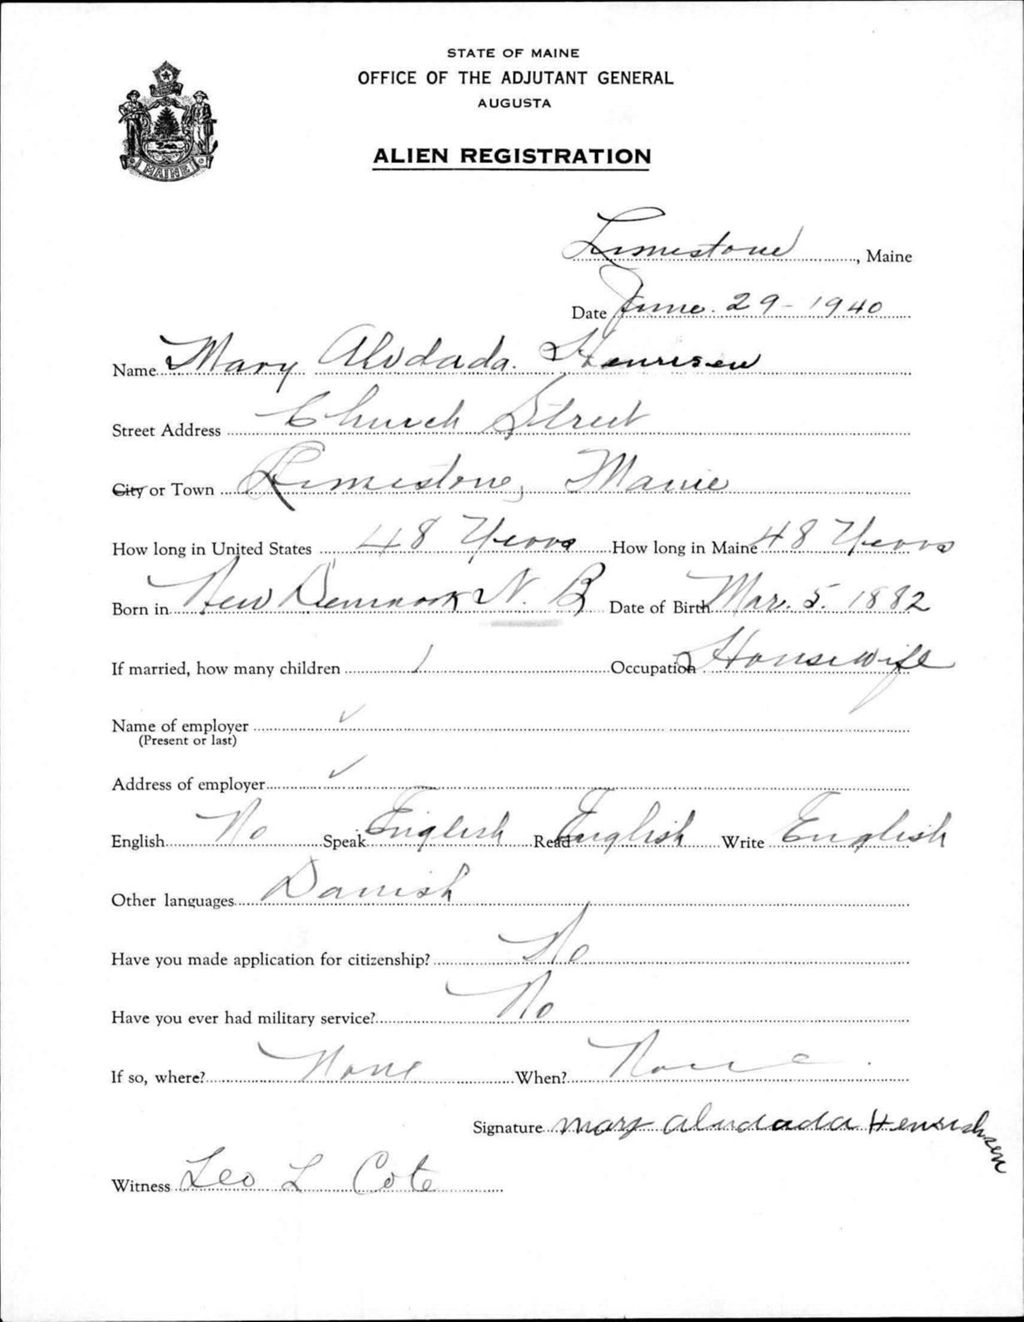 STATE OF MAINE
OFFICE OF THE ADJUTANT GENERAL
AUGUSTA
MAINE
ALIEN REGISTRATION
Limestone, Maine
Date June 29-1940
Name Mary Aludada Henrisen
Street Address Church Street
City or Town Limestone, Maine
How long in United States 48 Years How long in Maine 48 Years
Born in New Denmark N. B Date of Birth Mar. 5. 1882
If married, how many children 1 Occupation Housewife
Name of employer ✓
(Present or last)
Address of employer ✓
English No Speak English Read English Write English
Other languages Danish
Have you made application for citizenship? No
Have you ever had military service? No
If so, where? None When? None
Signature Mary Aludada
Witness Leo L Cote